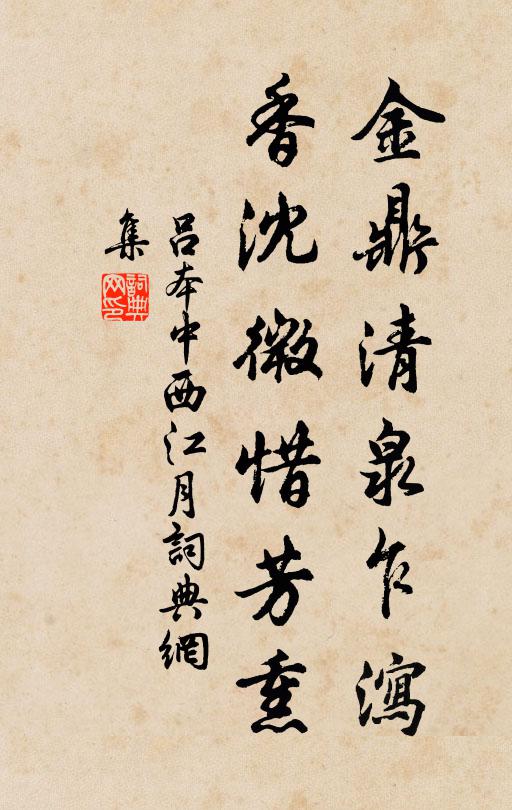 金鼎清泉乍瀉
香沈微惜芳熏
吕本中西江月詞典網
集
詞典
网印